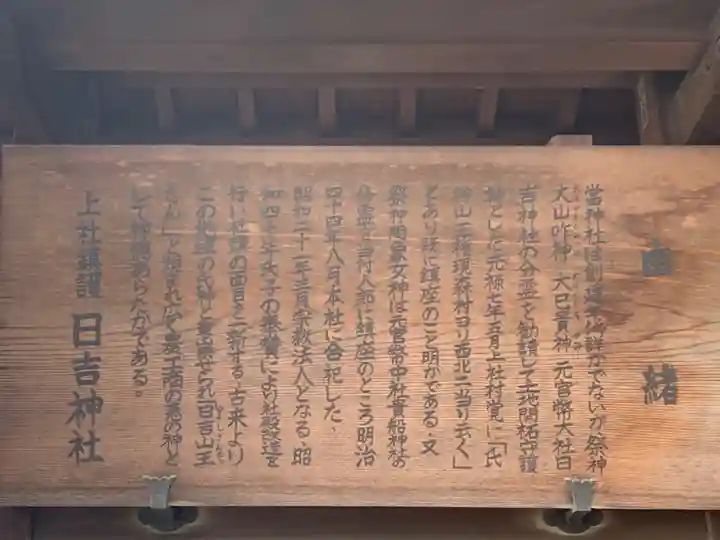 由緒
當神社は創建年代詳かでないが祭神
大山咋神、大己貴神、元官幣大社日
吉神社の分霊を勧請して土地開拓守護
神とした元禄七年五月上社村覚に「氏
神山王権現森村ヨリ西北二当り云々」
とあり既に鎮座のこと明かである、又
祭神罔象女神は元官幣中社貴船神社の
分霊を当村人部に鎮座のところ明治
四十四年八月本社に合祀した、
昭和二十一年三月宗教法人となる、昭
和四十年氏子の奉賛により社殿改造を
行い社頭の面目を一新する、古来より
この地方の氏神と崇敬せられ日吉山王
さん」と
して神徳あらたかである。
上社鎮護 日吉神社